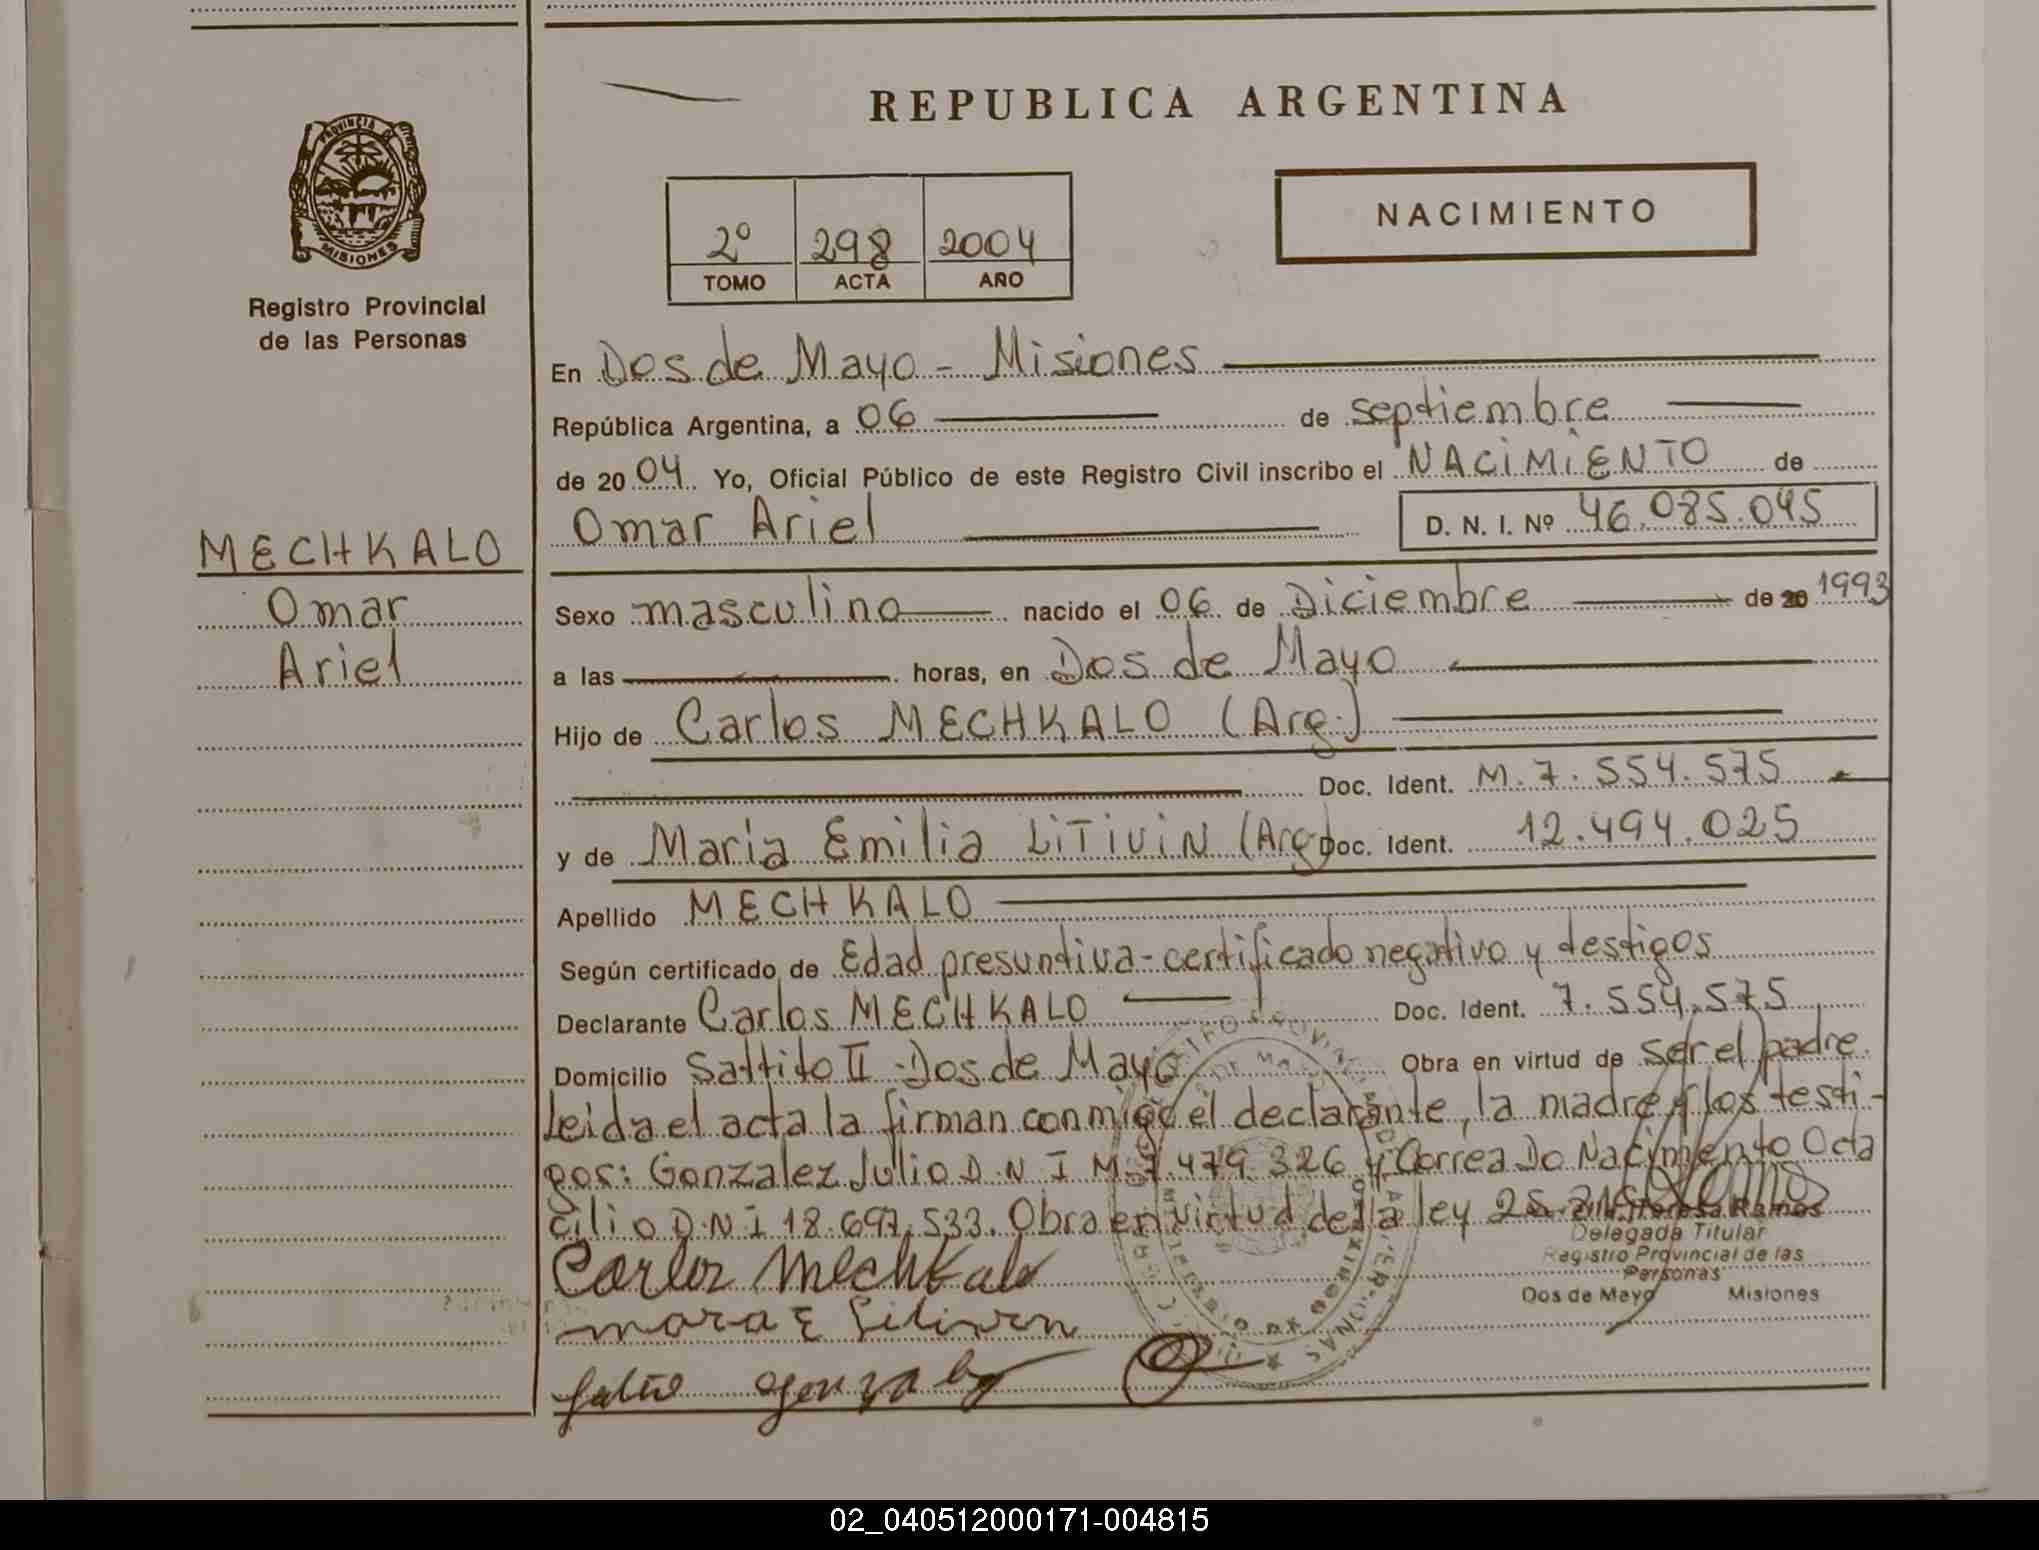 REPUBLICA ARGENTINA
PROVINCIA DE
MISIONES
Registro Provincial
de las Personas
2º 298 2004
TOMO ACTA AÑO
NACIMIENTO
En Dos de Mayo - Misiones
República Argentina, a 06 de septiembre
de 2004 Yo, Oficial Público de este Registro Civil inscribo el NACIMIENTO de
Omar Ariel D. N. I. Nº 46.085.045
MECHKALO
Omar
Ariel
Sexo masculino nacido el 06 de Diciembre de 20 1993
a las horas, en Dos de Mayo
Hijo de Carlos MECHKALO (Arg.)
Doc. Ident. M. 7. 554. 575
y de María Emilia LITIVIN (Arg) Doc. Ident. 12.494.025
Apellido MECHKALO
Según certificado de Edad presuntiva - certificado negativo y testigos
Declarante Carlos MECHKALO Doc. Ident. 7. 554. 575
Domicilio Saltito II - Dos de Mayo Obra en virtud de ser el padre.
Leida el acta la firman conmigo el declarante, la madre y los testi-
gos: Gonzalez Julio D.N.I M. 7.479.326 y Correa Do Nacimiento Octa
cilio D.N.I 18.697.533. Obra en virtud de la ley
Teresa Ramos
Delegada Titular
Registro Provincial de las
Personas
Dos de Mayo Misiones
Carlos Mechkalo